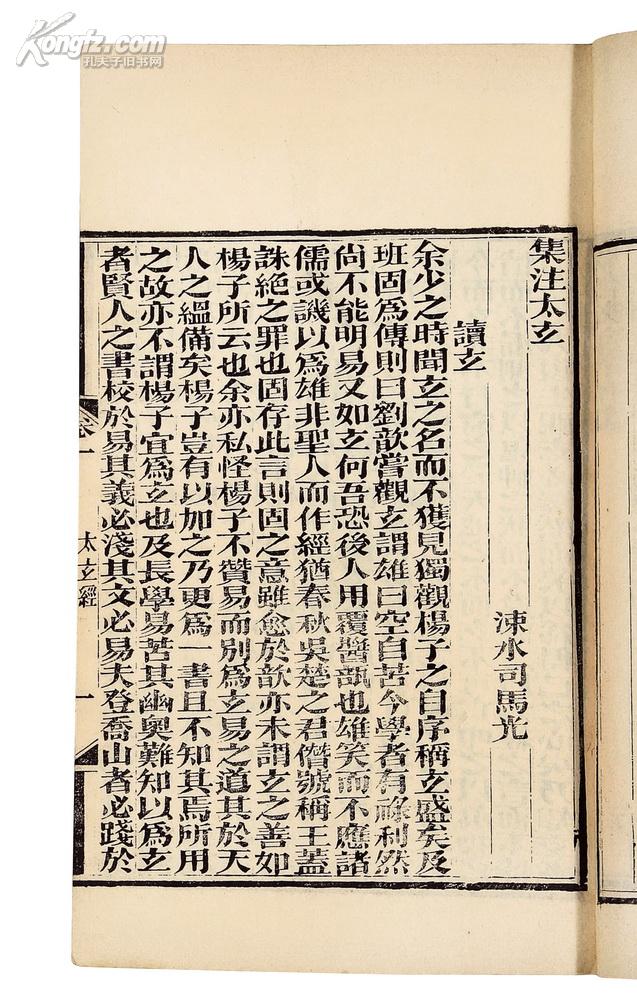 Kongfz.com
孔夫子旧书网
集注太玄
涑水司馬光
讀玄
余少之時聞玄之名而不獲見獨觀楊子之自序稱玄盛矣及
班固爲傳則曰劉歆嘗觀玄謂雄曰空自苦今學者有祿利然
尚不能明易又如玄何吾恐後人用覆醬瓿也雄笑而不應諸
儒或譏以爲雄非聖人而作經猶春秋吳楚之君僭號稱王蓋
誅絕之罪也固存此言則固之意雖愈於歆亦未謂玄之善如
楊子所云也余亦私怪楊子不贊易而別爲玄易之道其於天
人之緼備矣楊子豈有以加之乃更爲一書且不知其焉所用
之故亦不謂楊子宜爲玄也及長學易苦其幽奧難知以爲玄
者賢人之書校於易其義必淺其文必易夫登喬山者必踐於
卷一
太玄經
一